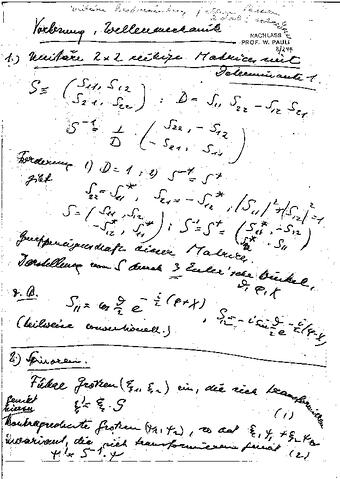 NACHLASS
PROF. W. PAULI
Vorlesung, Wellenmechanik
1.) Unitäre 2×2 reihige Matrizen mit
Determinante 1.
S ≡ (S₁₁, S₁₂ / S₂₁, S₂₂) : D = S₁₁ S₂₂ − S₁₂ S₂₁
S⁻¹ = 1/D · (S₂₂, −S₁₂ / −S₂₁, S₁₁)
Forderung 1) D = 1; 2) S⁻¹ = S⁺
gibt S₂₂ = S₁₁*, S₂₁ = −S₁₂*, |S₁₁|² + |S₁₂|² = 1
S = (S₁₁, S₁₂ / −S₁₂*, S₁₁*) ; S⁻¹ = S⁺ = (S₁₁*, −S₁₂ / S₁₂*, S₁₁)
Gruppeneigenschaft dieser Matrizen.
Darstellung von S durch 3 Euler'sche Winkel,
ϑ, φ, χ
z. B. S₁₁ = cos ϑ/2 e^{−i/2(φ+χ)}, S₁₂ = −i sin ϑ/2 e^{−i/2(φ−χ)}
(teilweise conventionell.)
2.) Spinoren.
Führe Größen (ξ₁, ξ₂) ein, die sich transformieren
ξ' = ξ · S (1)
Kontragrediente Größen (ψ₁, ψ₂), so daß ξ₁ψ₁ + ξ₂ψ₂
invariant, die sich transformieren gemäß (2)
ψ' = S⁻¹ · ψ